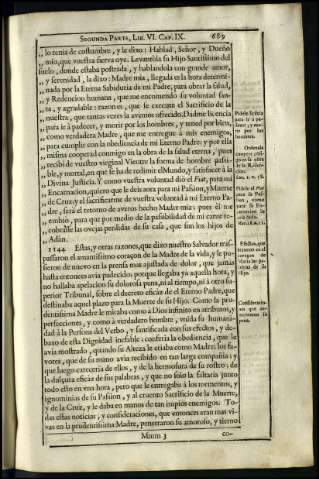 SEGUNDA PARTE, LIB. VI. CAP. IX. 689
„ lo tenia de costumbre, y le dixo: Hablad, Señor, y Dueño
„ mio, que vuestra sierva oye. Levantòla su Hijo Santissimo del
suelo, donde estaba postrada, y hablandola con grande amor,
„ y serenidad, la dixo: Madre mia, llegada es la hora determi-
„ nada por la Eterna Sabiduria de mi Padre, para obrar la salud,
„ y Redencion humana, que me encomendò su voluntad san-
„ ta, y agradable; razon es, que se execute el Sacrificio de la
„ nuestra, que tantas veces la avemos ofrecido. Dadme licencia
„ para ir à padecer, y morir por los hombres, y tened por bien,
„ como verdadera Madre, que me entregue à mis enemigos,
„ para cumplir con la obediencia de mi Eterno Padre; y por ella
„ misma cooperad conmigo en la obra de la salud eterna, pues
„ recibì de vuestro virginal Vientre la forma de hombre passi-
„ ble, y mortal, en que se ha de redimir el Mundo, y satisfacer à la
„ Divina Justicia. Y como vuestra voluntad diò el Fiat, para mi
„ Encarnacion, quiero que le deis aora para mi Passion, y Muerte
„ de Cruz; y el sacrificarme de vuestra voluntad à mi Eterno Pa-
„ dre, serà el retorno de averos hecho Madre mia; pues èl me
„ embiò, para que por medio de la passibilidad de mi carne re-
„ cobrasse las ovejas perdidas de su casa, que son los hijos de
„ Adàn.
1144 Estas, y otras razones, que dixo nuestro Salvador tras-
passaron el amantissimo coraçon de la Madre de la vida, y le pu-
sieron de nuevo en la prensa mas ajustada de dolor, que jamàs
hasta entonces avia padecido; porque llegaba yà aquella hora, y
no hallaba apelacion su dolorosa pena, ni al tiempo, ni à otro su-
perior Tribunal, sobre el decreto eficaz de el Eterno Padre, que
destinaba aquel plazo para la Muerte de su Hijo. Como la pru-
dentissima Madre le miraba como à Dios infinito en atributos, y
perfecciones, y como à verdadero hombre, unida su humani-
dad à la Persona del Verbo, y santificada con sus efectos, y de-
baxo de esta Dignidad inefable: conferia la obediencia, que le
avia mostrado, quando su Alteza le criaba como Madre; los fa-
vores, que de su mano avia recibido en tan larga compañia; y
que luego careceria de ellos, y de la hermosura de su rostro; de
la dulçura eficaz de sus palabras, y que no solo la faltaria junto
todo esto en una hora, pero que le entregaba à los tormentos, y
ignominias de su Passion, y al cruento Sacrificio de la Muerte,
y de la Cruz, y le daba en manos de tan impios enemigos. To-
das estas noticias, y consideraciones, que entonces eran mas vi-
vas en la prudentissima Madre, penetraron su amoroso, y tierno
Mmm 3 co-